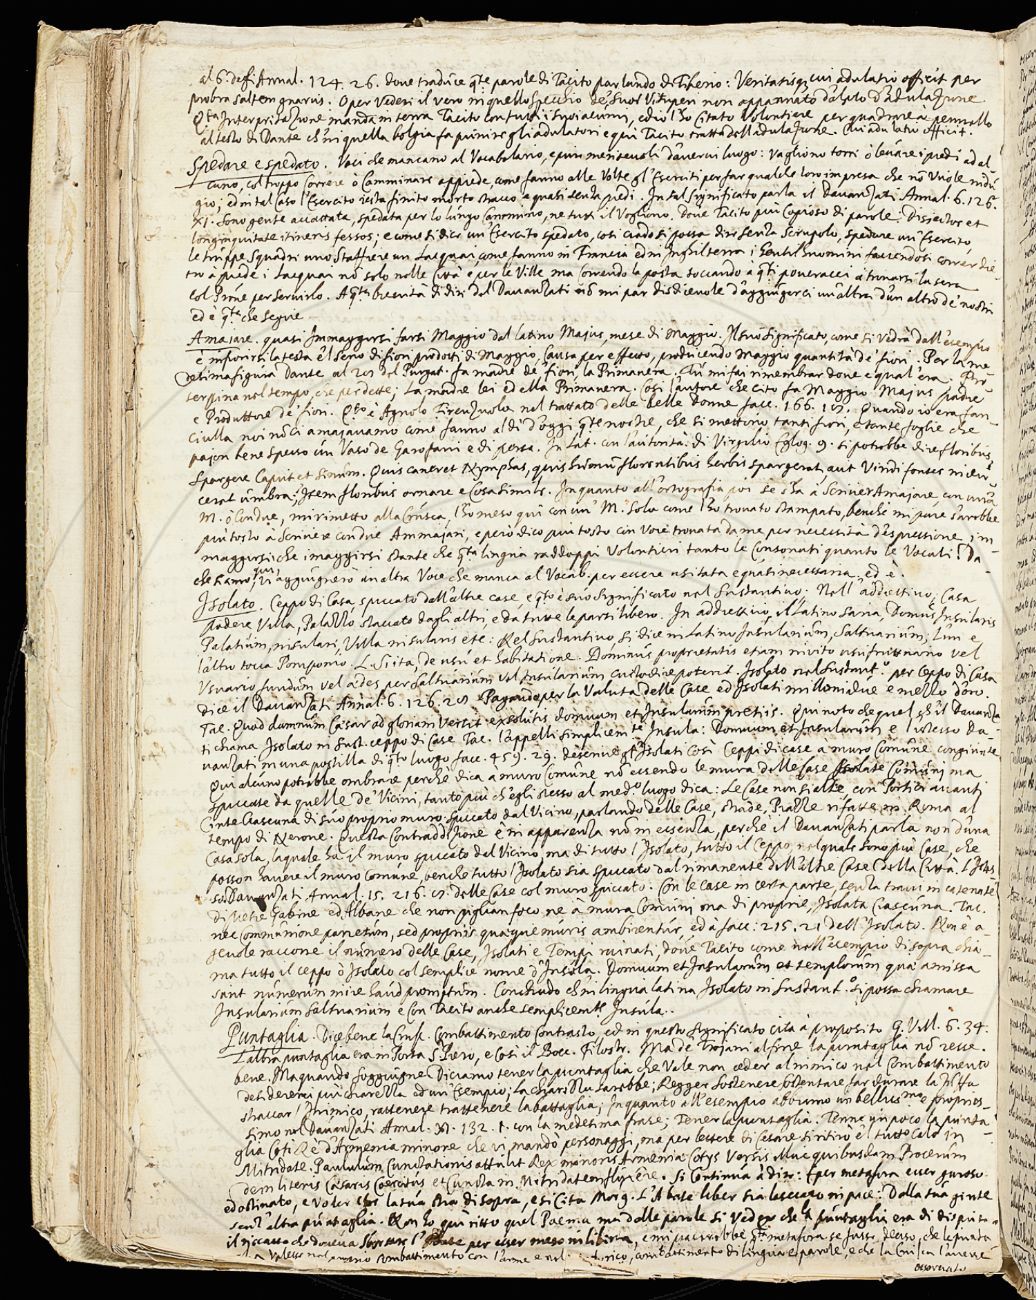 al 6. degl'Annal. 124. 26. dove traduce q.te parole di Tacito parlando di Tiberio: Veritatisq; cui adulatio officit per
probra saltem gnarus. O per vedersi il vero in quello specchio de suoi vituperi non appannato d'alito d'adulazione
Q.ta Interpretazione manda in terra Tacito con tutti i suoi alcuni, ed io l'ho citato volentieri per quadrare a pennello
al testo di Dante ch'in quella bolgia fa punire gl'adulatori e qui Tacito tratta dell'adulazione. Cui adulatio officit.
Spedare e spedato. Voci che mancano al Vocabolario, e pur meritevoli d'avervi luogo: vagliono torre ò levare i piedi ad al
cuno, col troppo correre ò camminare appiede, come fanno alle volte gl'Eserciti per far qualche loro impresa che nō vuole indu
gio; ed in tal caso l'Esercito resta finito morto stracco e quasi senza piedi. In tal significato parla il Davanzati Annal. 6. 126.
XI. Sono gente accattata, spedata per lo lungo cammino, ne tutti il vogliono. dove Tacito più copioso di parole. Disjectos et
longinquitate itineris fessos; e come si dice un Esercito spedato, così credo si possa dir senza scrupolo, spedare un Esercito
le truppe squadre uno staffiere un Lacquai, come fanno in Francia ed in Inghilterra i Gentiluomini facendosi correr die
tro à piede i Lacquai nō solo nelle Città e per le Ville ma correndo la posta toccando a q.ti poveracci a trovarsi la sera
col Prñe per servirlo. A q.ta brevità di dire del Davanzati nō mi par disdicevole d'aggiungerci un'altra d'un altro de nostri
ed è q.ta che segue
Amajare. quasi Immaggiarsi farsi Maggio dal latino Majus, mese di Maggio. Il suo significato, come si vedrà dall'esempio
è infiorirsi la testa e'l seno di fiori prodotti di Maggio, causa per effetto, producendo Maggio quantità de fiori. Per la me
desima figura Dante al 28 del Purgat. fa madre de fiori la Primavera. Tu mi fai rimembrar dove e qual era Pro
serpina nel tempo, che perdette; La madre lei ed ella Primavera. Così l'autore che cito fa Maggio Majus padre
e Produttore de fiori. Q.to è Agnolo Firenzuola nel trattato delle belle donne facc. 166. 18. Quando io era fan
ciulla noi nō ci amajavamo come fanno al dì d'oggi q.te nostre, che si mettono tanti fiori, e tante foglie che
pajon bene spesso un Vaso de Garofani e di persa. In Lat. con l'autorità di Virgilio Eglog. 9. si potrebbe dire floribus
spargere Caput et sinum. Quis caneret Nymphas, quis humum florentibus herbis spargerat, aut viridi fontes indu
ceret umbra; Item floribus ornare e cosa simile. In quanto all'ortografia poi se s'ha a scriver Amajare con una
M. ò con due, mi rimetto alla Crusca, l'ho messo qui con un M. solo come l'ho trovato stampato, benchè mi pare sarebbe
più tosto à scriver con due Ammajari, e però dico più tosto con Voce trovata da me per necessità d'espressione im
maggiarsi che imaggiarsi stante che q.ta lingua raddoppi volentieri tanto le consonati quanto le Vocali. Da
che siamo qui vi aggiugnerò un altra Voce che manca al Vocab. per essere usitata e quasi necessaria, ed è.
Isolato. Ceppo di Casa spiccato dall'altre case e q.to è suo significato nel sustantivo; Nell'addiettivo; Casa
Podere Villa, Palazzo staccato dagli altri, e da tutte le parti libero. In addiettivo, il Latino saria Domus Insularis
Palatium, insulari, Villa insularis etc: Nel sustantivo si dice in Latino Insularium, saltuarium; L'un e
l'altro tocca Pomponio. L. Scita, De usu et habitatione. Dominus proprietatis etiam invito usufructuario vel
Usuario fundum vel ades per saltuarium vel Insularium custodire poterit. Isolato nel sustant.o per ceppo di Casa
dice il Davanzati Annal. 6. 126. 28. Pagando per la valuta delle Case ed Isolati milloni due e mezzo d'oro.
Tac. Quod damnum Cæsar ad gloriam vertit exsolutis domuum et Insularum pretiis. Qui noto che quel ch'il Davanza
ti chiama Isolato in sust. ceppo di Case Tac. l'appelli simplicem.te Insula: Domuum et Insularum e l'istesso Da
vanzati in una postilla di q.to luogo facc. 459. 29. descrive q.ti Isolati Così Ceppi di case a muro comune congiunte
Qui alcuno potrebbe ombrare perchè dica a muro comune nō essendo le mura delle Case Isolate Comuni ma
spiccate da quelle de' Vicini, tanto più ch'egli stesso al med.o luogo dica: Le Case non s'alte con Portici avanti
cinte Ciascuna di suo proprio muro spiccato dal Vicino, parlando delle Case, strade, Piazze rifatte in Roma al
tempo di Nerone. Questa Contraddizione è in apparenza nō in essenza, perchè il Davanzati parla non d'una
Casa sola, laquale ha il muro spiccato dal Vicino, ma di tutto l'Isolato, tutto il Ceppo, nel quale sono più Case, che
posson havere il muro comune, benche tutto l'Isolato sia spiccato dal rimanente dell'altre Case della Città. L'Istes
so Davanzati Annal. 15. 216. 8. delle Case col muro spiccato. Con le Case in certa parte, senza travi incatenate
di Pietre Gabine ed Albane che non piglian foco ne à mura comuni ma di proprie, Isolata Ciascuna. Tac.
nec communione parietum, sed propriis quæque muris ambirentur, ed à facc: 215. 21 dell'Isolato. Non è a-
gevole raccorre il numero delle Case, Isolati e Tempi rovinati, dove Tacito come nell'esempio di sopra chia
ma tutto il ceppo ò Isolato col semplice nome d'Insula. Domuum et Insularum et templorum quæ amissa
sunt numerum inire haud promptum. Conchiudo ch'in lingua latina Isolato in sustant.o si possa chiamare
Insularium saltuarium e con Tacito anche semplicem.te Insula.
Puntaglia. Dice bene la Crusca Combattimento Contrasto, ed in questo significato cita à proposito G. Vill. 6. 34.
L'altra puntaglia era in Porta S. Piero, e così il Bocc. Filostr. Ma de Trojani al fine la puntaglia nō resse
bene. Ma quando soggiugne Diciamo tener la puntaglia che vale non ceder al nimico nel combattimento
desidererei più chiarezza ed un Esempio; la chiarezza sarebbe; Regger sostenere sostentare far durare la zuffa
straccar l'Inimico, rattenere trattenere la battaglia; In quanto all'esempio abbiamo un bellissimo e proprios-
simo nel Davanzati Annal. XI. 132. 1. con la medesima frase; Tener la puntaglia. Tenne un poco la punta-
glia Coti Re d'Armenia minore che vi mandò personaggi, ma per lettere di Cesare si ritirò e tutto calò in
Mitridate. Paululum Cunctationis attulit Rex minoris Armeniæ Cotys versis illuc quibusdam Procerum
dein literis Cæsaris coercitus et cuncta in Mitridatem fluxere. Si Continua à dire: E per metafora esser garoso
ed ostinato, e voler la sua Sta di sopra, e si cita Morg. L'Abate liber sia lasciato in pace: Dalla sua gente
senz'altra puntaglia. Non ho qui visto quel Poema ma dalle parole si vede che la puntaglia era di disputa
il riccatto che doveva sborsare l'Abate per esser messo in libertà, e mi parrebbe q.ta metafora se fusse, deuso, che le punta
combattimento con l'arme e combattimento di lingua e parole, e che la Crusca l'avesse
osservato